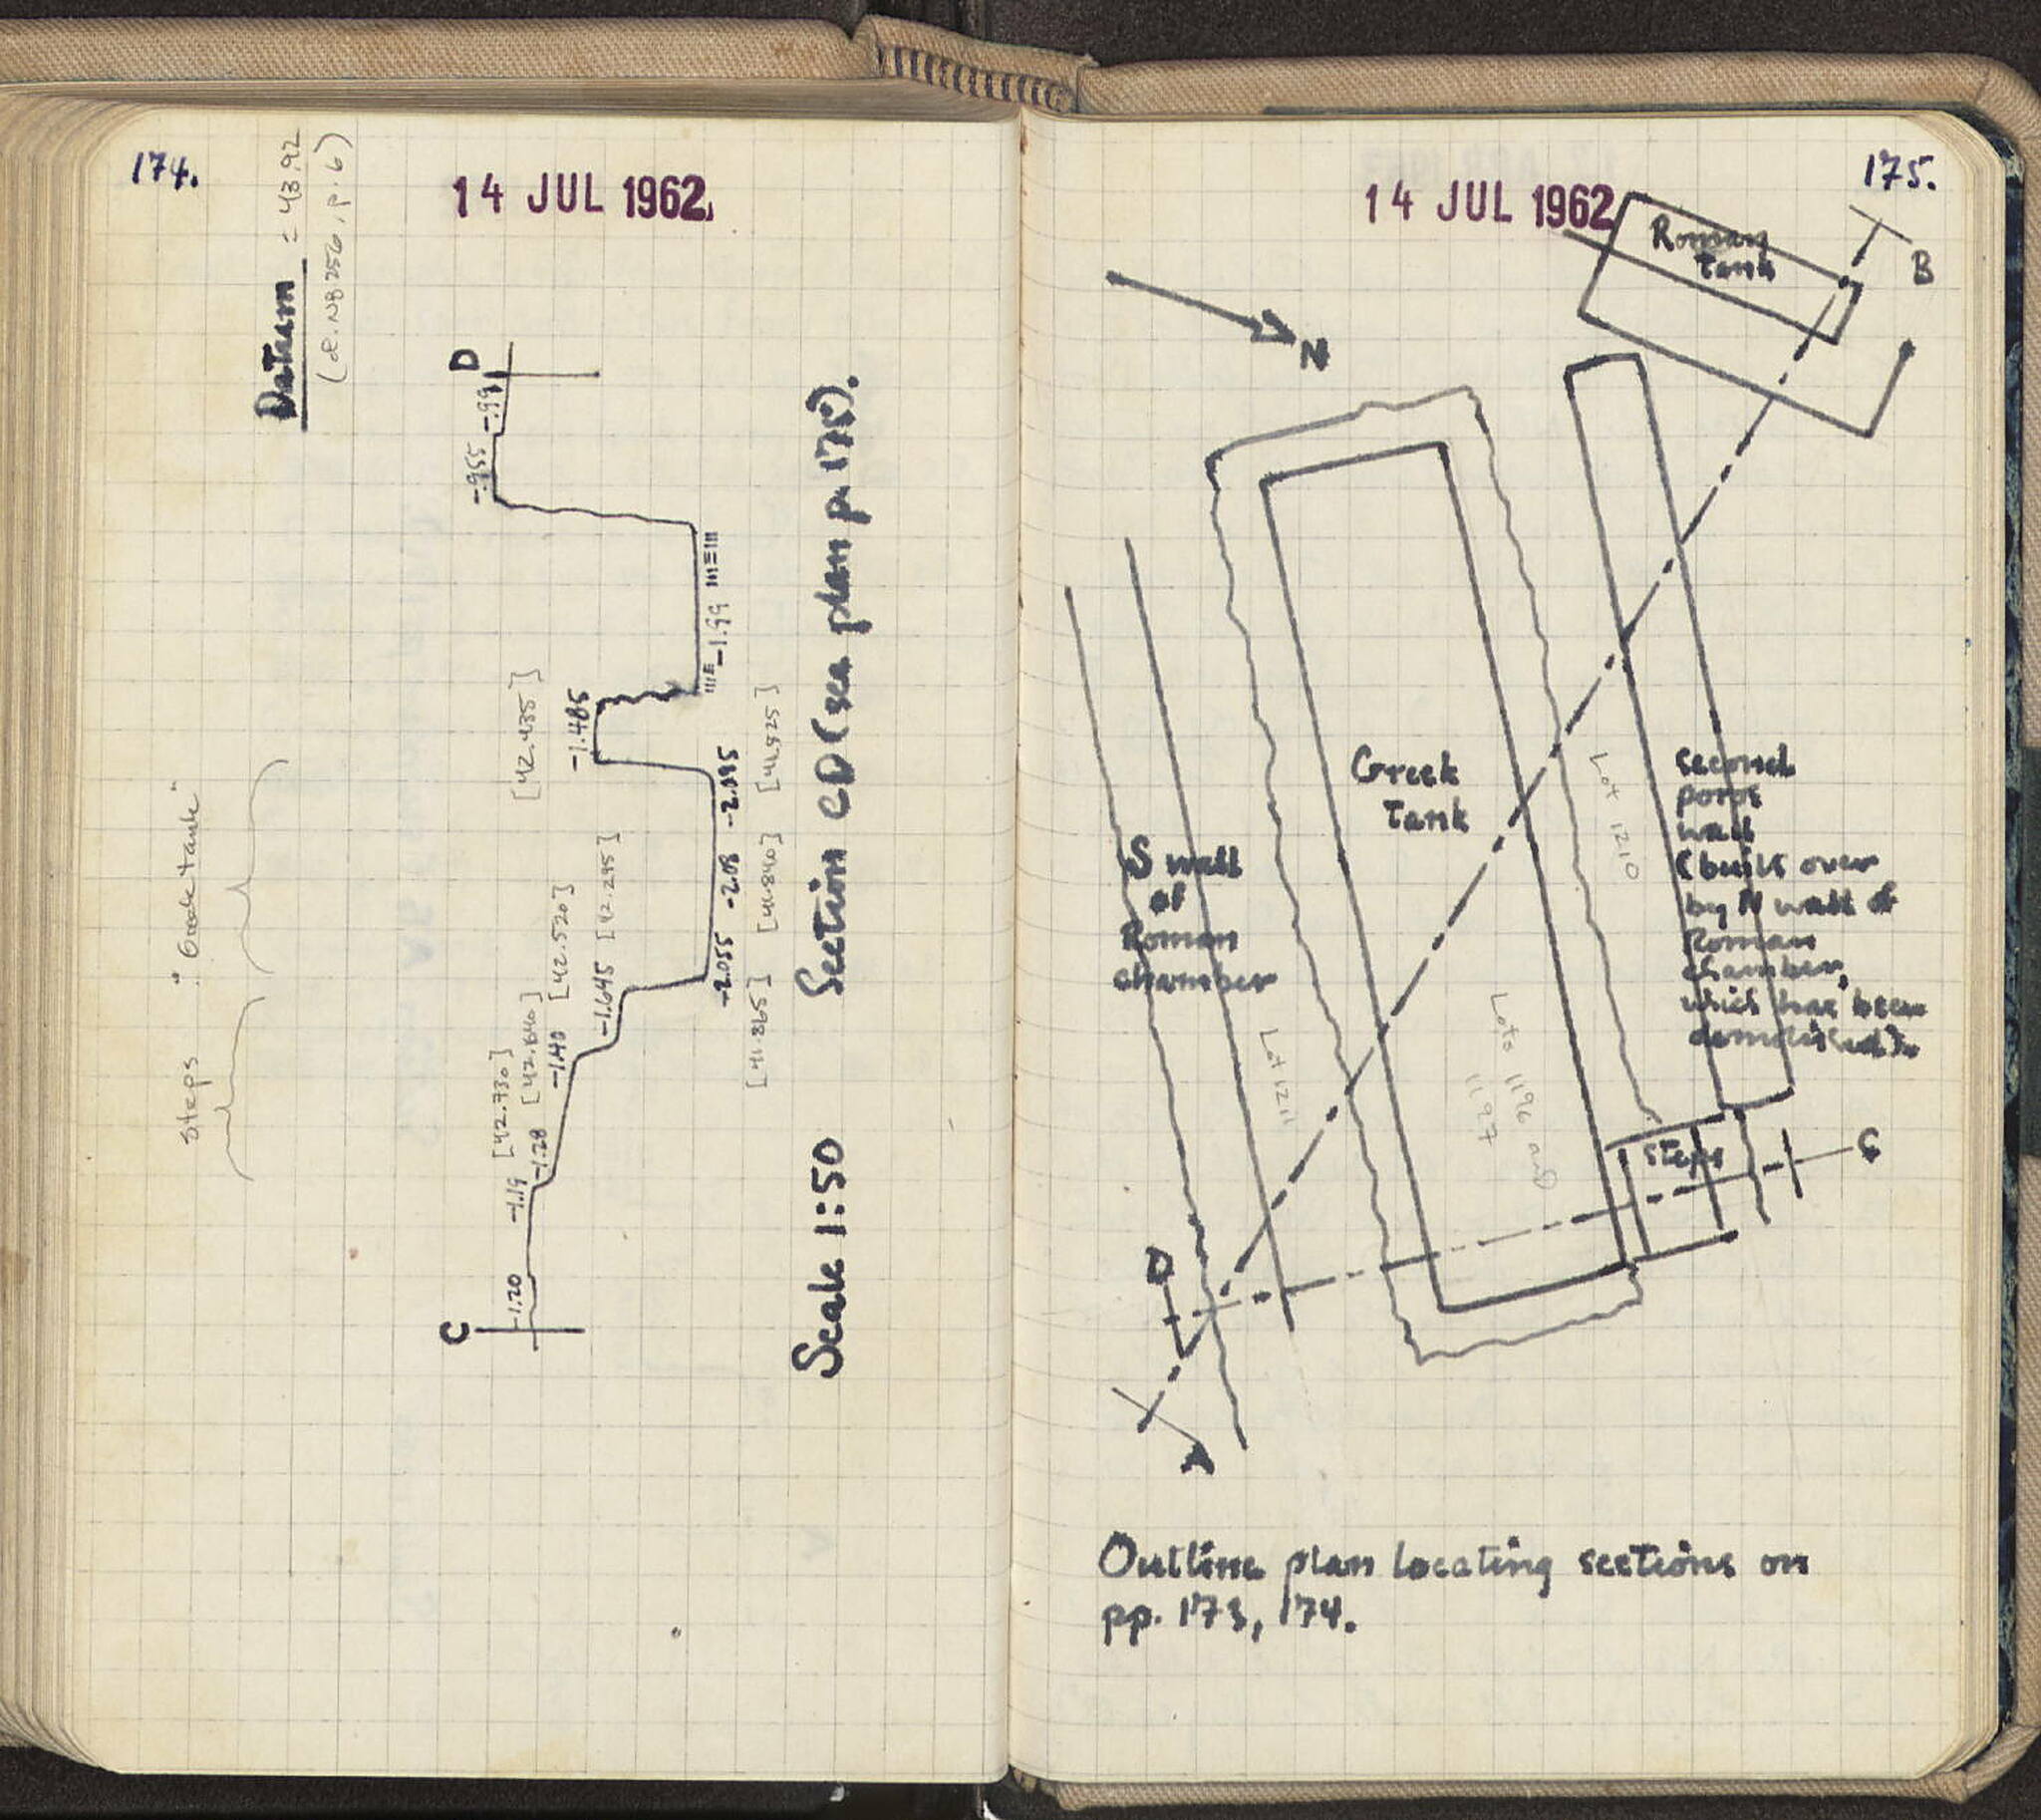 174.
14 JUL 1962
Datum = 43.92
(cf. NB 256, p. 6)
Steps
"Greek tank"
C
-1.20
-1.19
-1.28
-1.40
-1.645
-2.055
-2.08
-2.095
-1.485
-1.99
-.955
-.99
D
[42.730]
[42.640]
[42.520]
[42.295]
[41.865]
[41.840]
[41.825]
[42.435]
Scale 1:50
Section CD (see plan p. 175).
175.
14 JUL 1962
Roman
Tank
B
N
Greek
Tank
Lot 1210
second
poros
wall
(built over
by N wall of
Roman
chamber,
which has been
demolished).
S wall
of
Roman
chamber
Lot 1211
Lots 1196 and
1197
Steps
C
D
A
Outline plan locating sections on
pp. 173, 174.